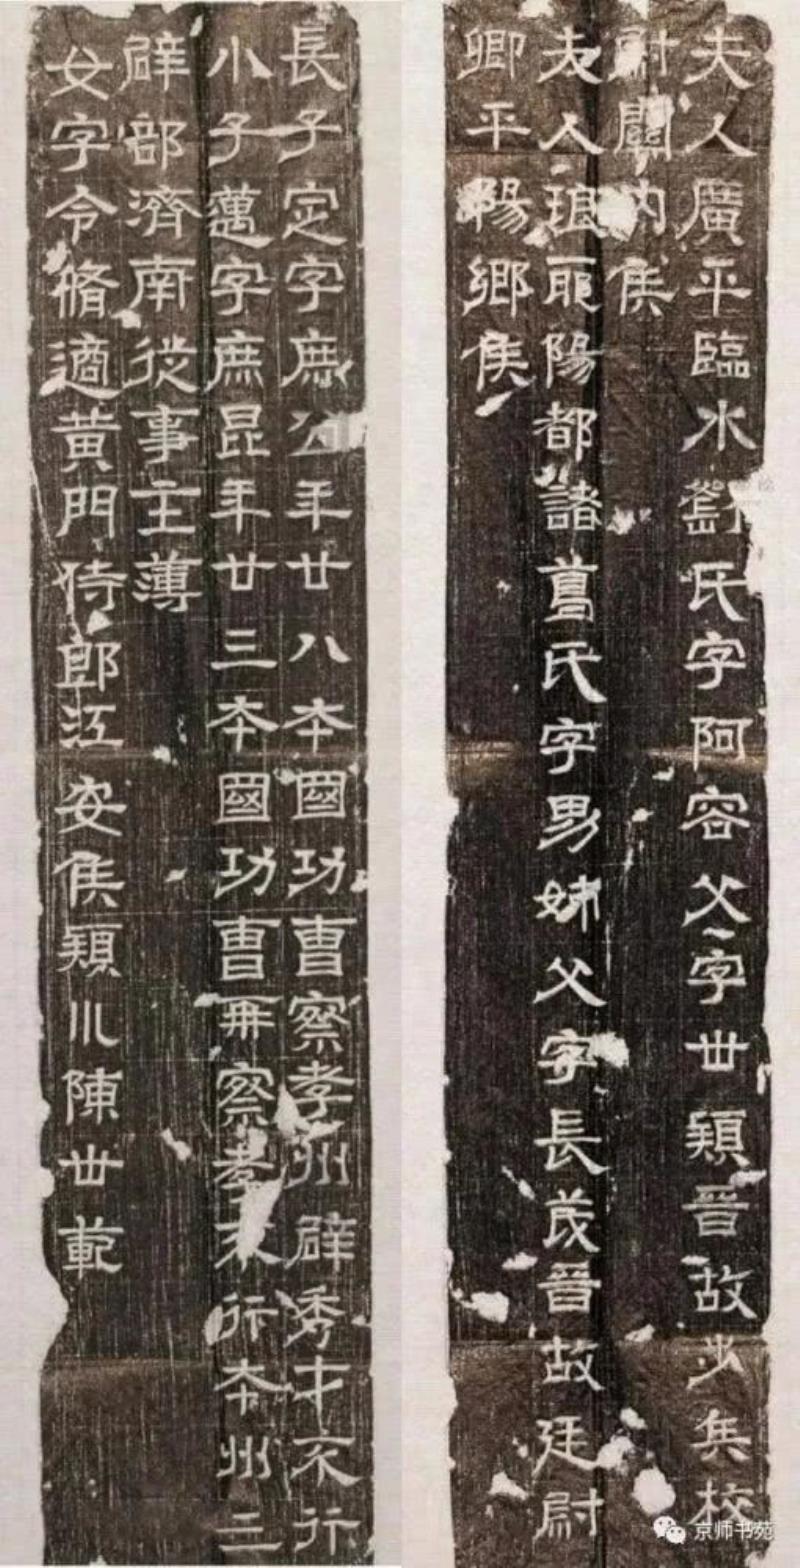 夫人廣平臨水劉氏字阿容父字世穎晉故步兵校
尉關內侯
夫人琅耶陽都諸葛氏字男姊父字長茂晉故廷尉
卿平陽鄉侯
長子定字庶公年廿八本國功曹察孝州辟秀才不行
小子邁字庶昆年廿三本國功曹再察孝不行本州三
辟部濟南從事主薄
女字令脩適黃門侍郎江安侯穎川陳世範
京师书苑